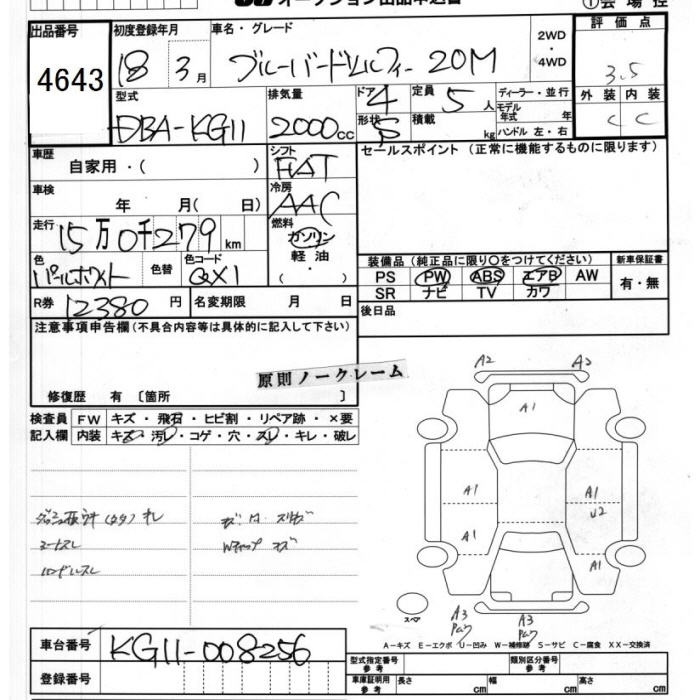 オークション出品申込書
①会場控
出品番号 4643
初度登録年月 18 3月
車名・グレード ブルーバードシルフィー 20M
2WD ・ 4WD
評価点 3.5
外装 内装
C C
型式 DBA-KG11
排気量 2000cc
ドア 4
形状 S
定員 5人
積載 kg
ディーラー・並行
モデル年式 年
ハンドル 左・右
車歴 自家用・( )
シフト FAT
セールスポイント (正常に機能するものに限ります)
車検 年 月( 日)
冷房 AAC
走行 15万0千279 km
燃料 ガソリン 軽油 ・
色 パールホワイト 色替
色コード QX1
装備品 (純正品に限り○をつけてください)
新車保証書
PS PW ABS エアB AW
有・無
SR ナビ TV カワ
R券 12380 円
名変期限 月 日
後日品
注意事項申告欄 (不具合内容等は具体的に記入して下さい)
原則ノークレーム
修復歴 有 〔箇所 〕
検査員記入欄
FW キズ・飛石・ヒビ割・リペア跡・×要
内装 キズ・汚レ・コゲ・穴・スレ・キレ・破レ
シートスレ
ハンドルスレ
A2 A2
A1
A1 A1
U2
A1 A1
スペア
A3 A3
A-キズ E-エクボ U-凹み W-補修跡 S-サビ C-腐食 XX-交換済
車台番号 KG11-008256
登録番号
型式指定番号 参考
類別区分番号 参考
車庫証明用 参考 長さ cm 幅 cm 高さ cm